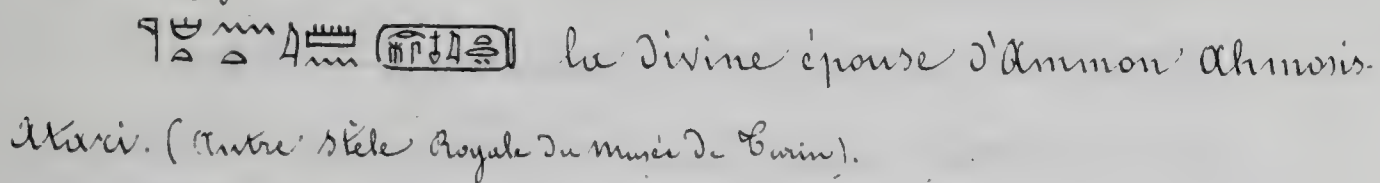 la Divine épouse d'Ammon Ahmosis-
Atari. (Autre Stèle Royale du musée de Turin).